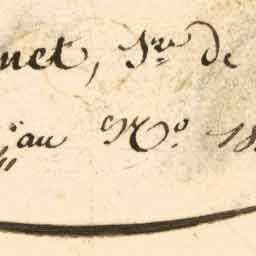 net, Sre de
au No. 18